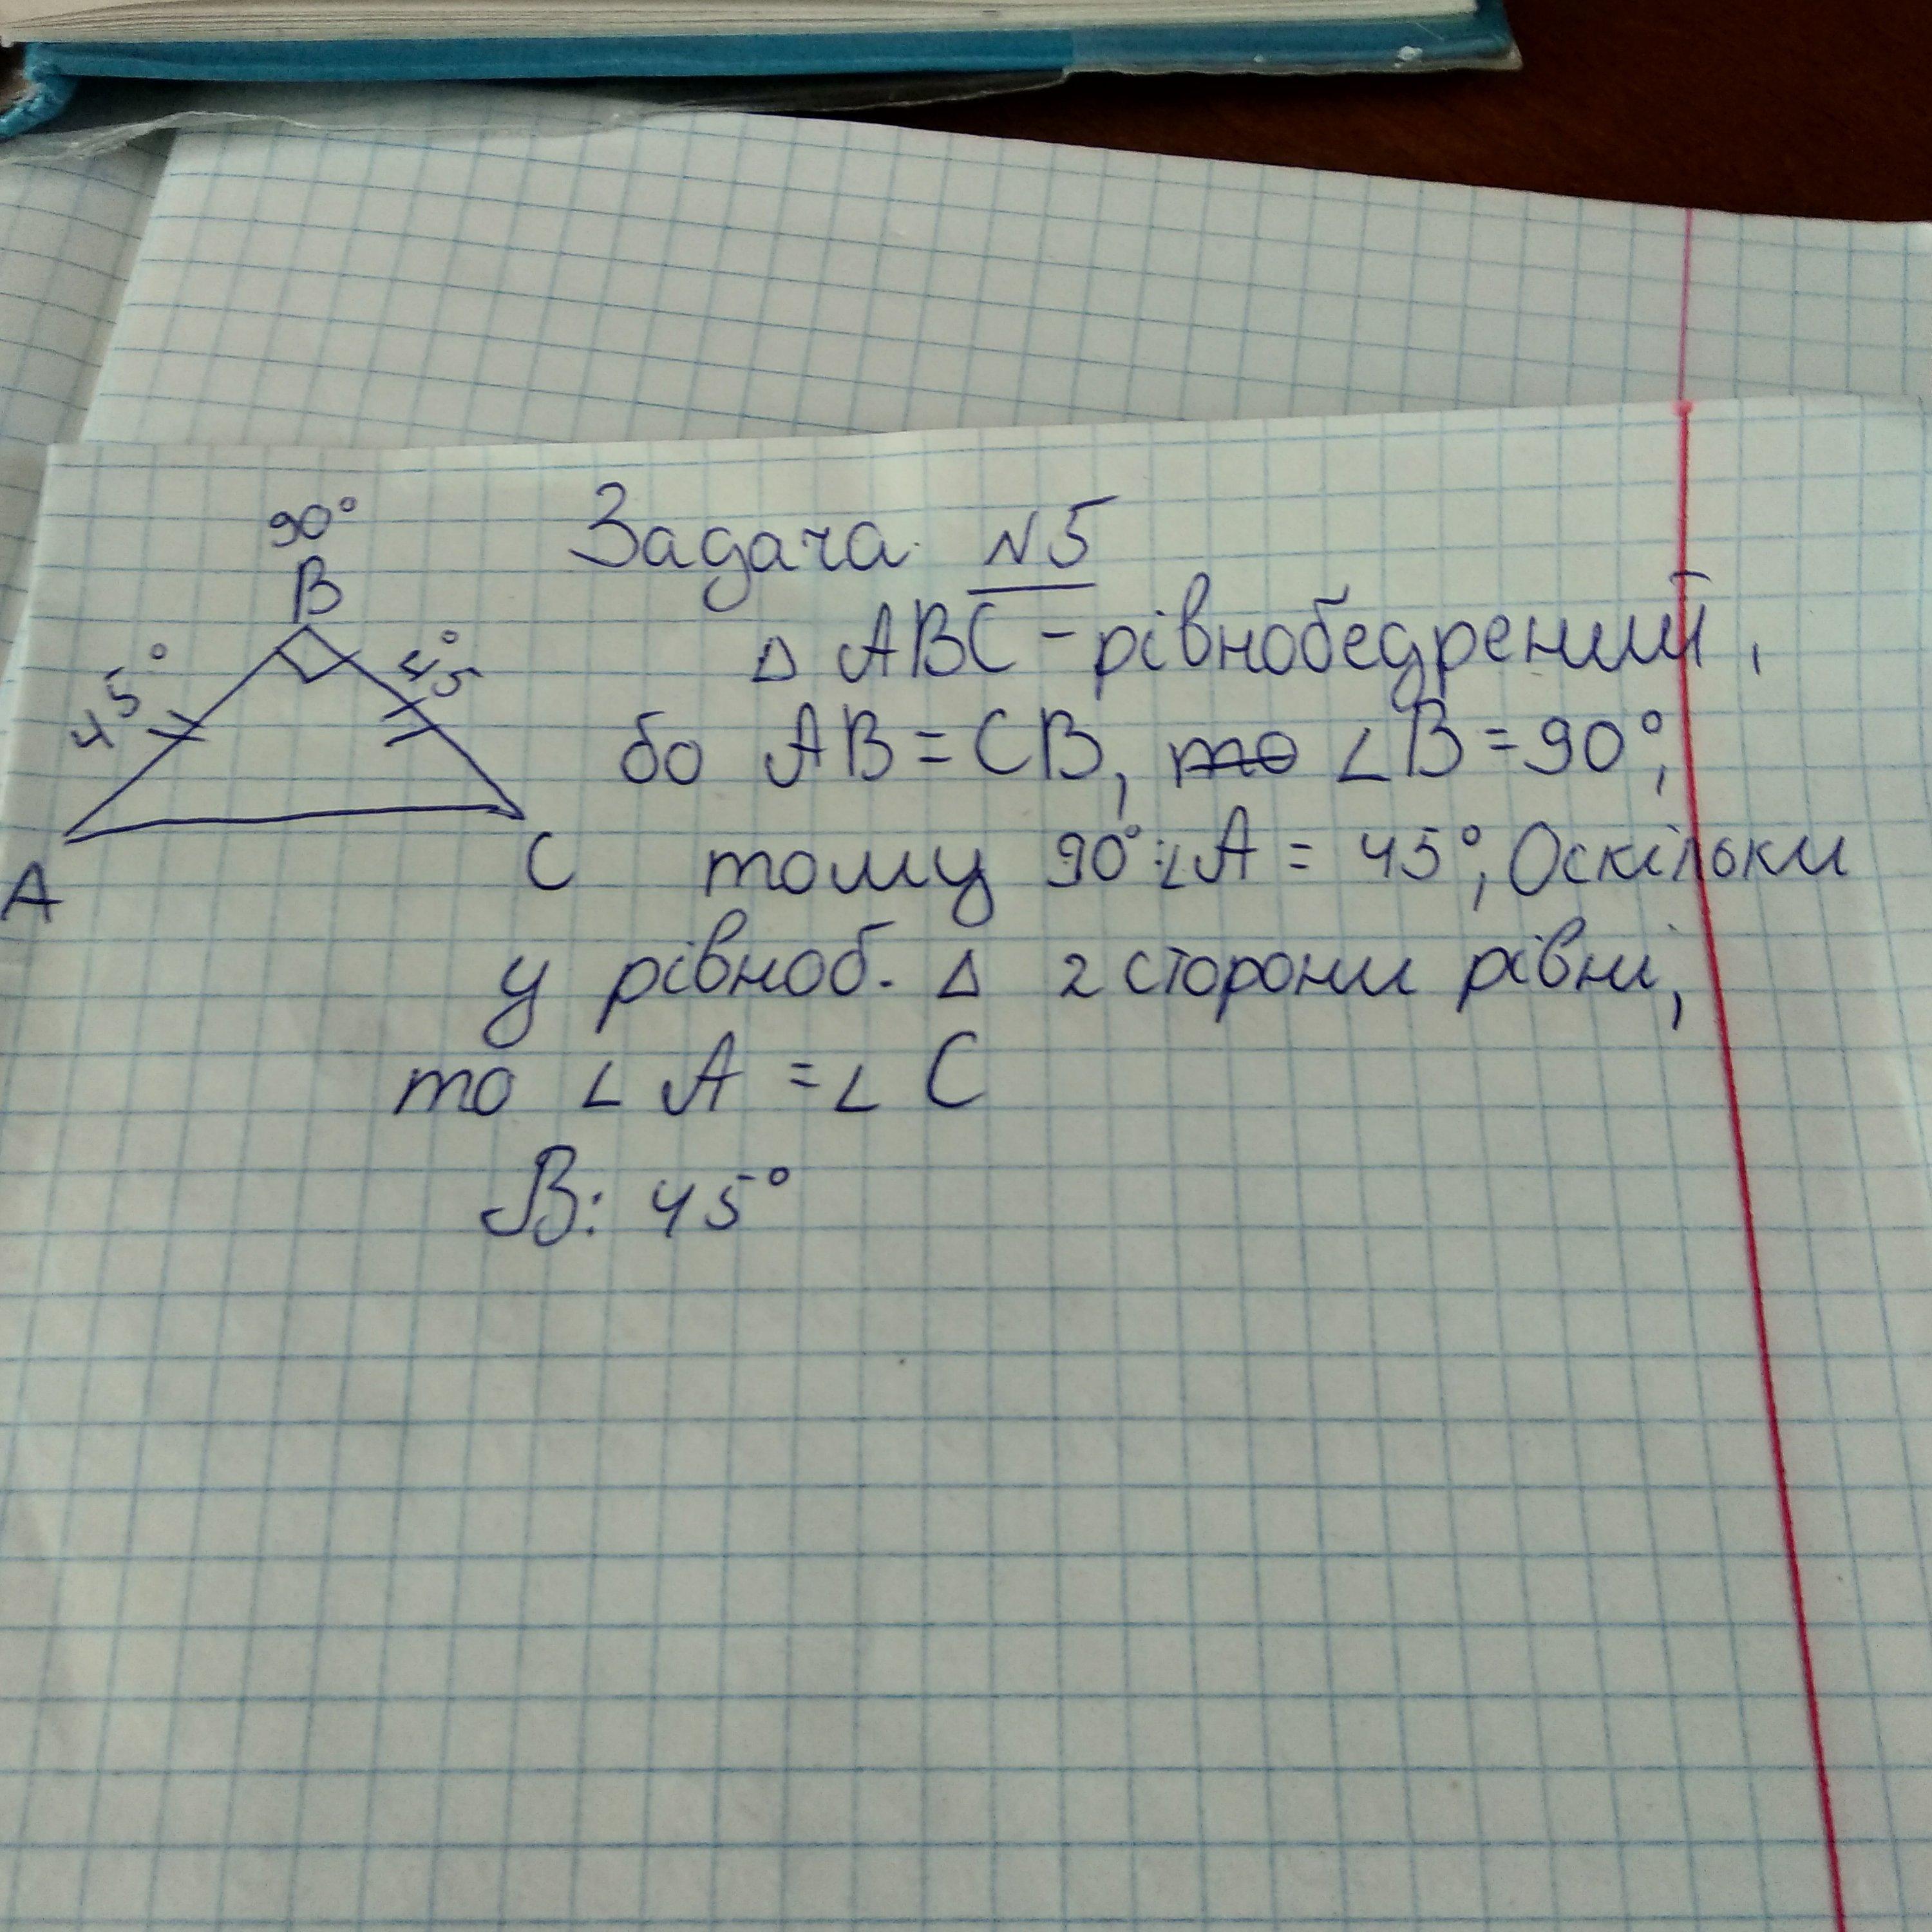 90°
B
45°
45°
A
C
Задача №5
△ ABC - рівнобедрений,
бо AB = CB, то ∠B = 90°,
тому 90°:∠A = 45°, Оскільки
у рівноб. △ 2 сторони рівні,
то ∠A = ∠C
В: 45°